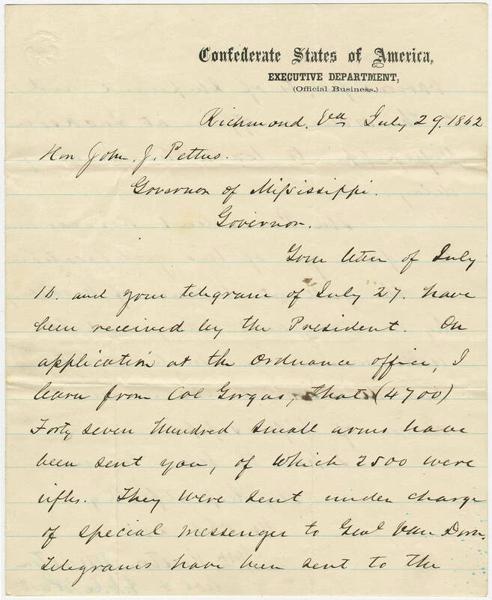 Confederate States of America,
EXECUTIVE DEPARTMENT,
(Official Business.)
Richmond, Va July 29. 1862
Hon John. J. Pettus.
Governor of Mississippi.
Governor.
Your letter of July
16. and your telegram of July 27. have
been received by the President. On
application at the Ordnance office, I
learn from Col Gorgas, that (4700)
Forty seven Hundred small arms have
been sent you, of which 2500 were
rifles. They were sent under charge
of special messenger to Genl Van Dorn,
Telegrams have been sent to the